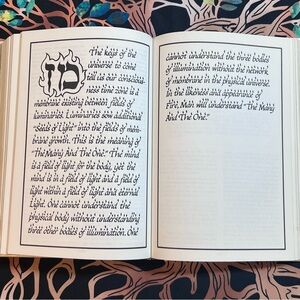 מז
The keys of the
universe to come
tell us our conscious-
ness time zone is a
membrane existing between fields of
luminaries. Luminaries sow additional
"Seeds of Light" into the fields of mem-
brane growth. This is the meaning of
"The Many And The One." The mind
is a field of light for the body, yet the
mind is in a field of light and a field of
light within a field of light and eternal
Light. One cannot understand the
physical body without understanding
three other bodies of illumination. One
cannot understand the three bodies
of illumination without the network
of membrane in the physical universe.
In the likeness and appearance of
Fire, Man will understand "The Many
And The One."